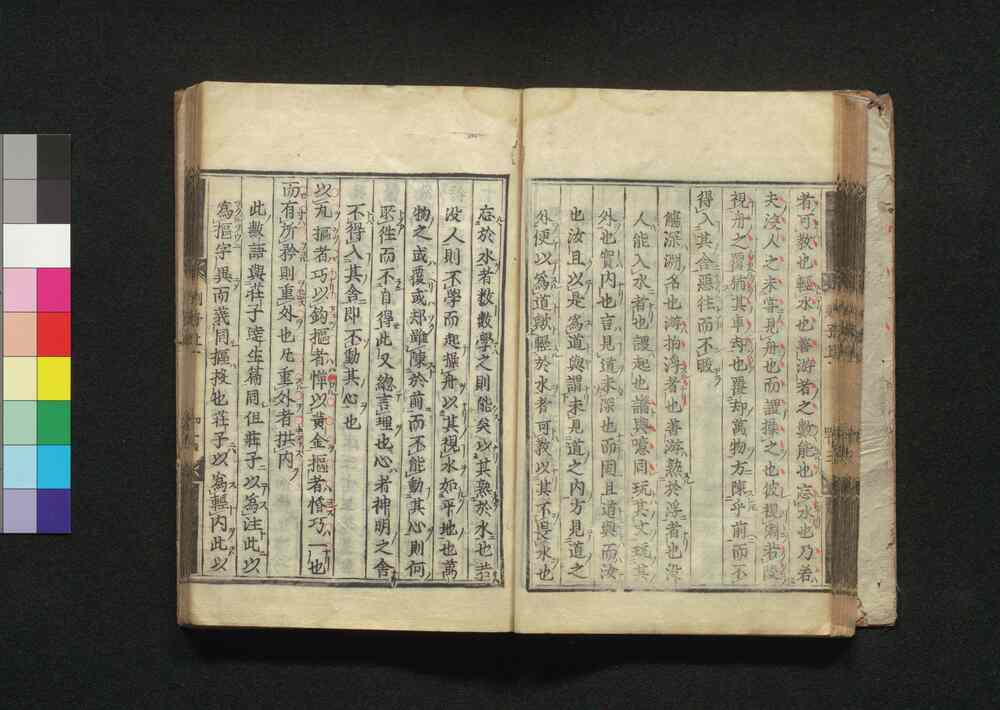 者可教也輕水也善游者之數能也忘水也乃若
夫沒人之未嘗見舟也而謖操之也彼視淵若陵
視舟之覆猶其車却也覆却萬物方陳乎前而不
得入其舍惡往而不暇
深淵名也游拍浮者也善游熟於浮者也沒
人能入水者也謖起也譩與噫同玩其文玩其
外也實內也言見道未深也而固且道與而汝
也汝且以是為道與謂未見道之內方見道之
外便以為道歟輕於水者可教以其不畏水也
忘於水者数数學之則能矣以其熟於水也若
没人則不學而起操舟以其視水如平地也萬
物之或覆或却雖陳於前而不能動其心則何
所徃而不自得此又總言理也心者神明之舍
不得入其舍即不動其心也
以瓦摳者巧以鈎摳者憚以黄金摳者惛巧一也
而有所矜則重外也凡重外者拱内
此數語與莊子達生篇同但莊子以為注此以
為摳字異而義同摳投也莊子以為輕内此以